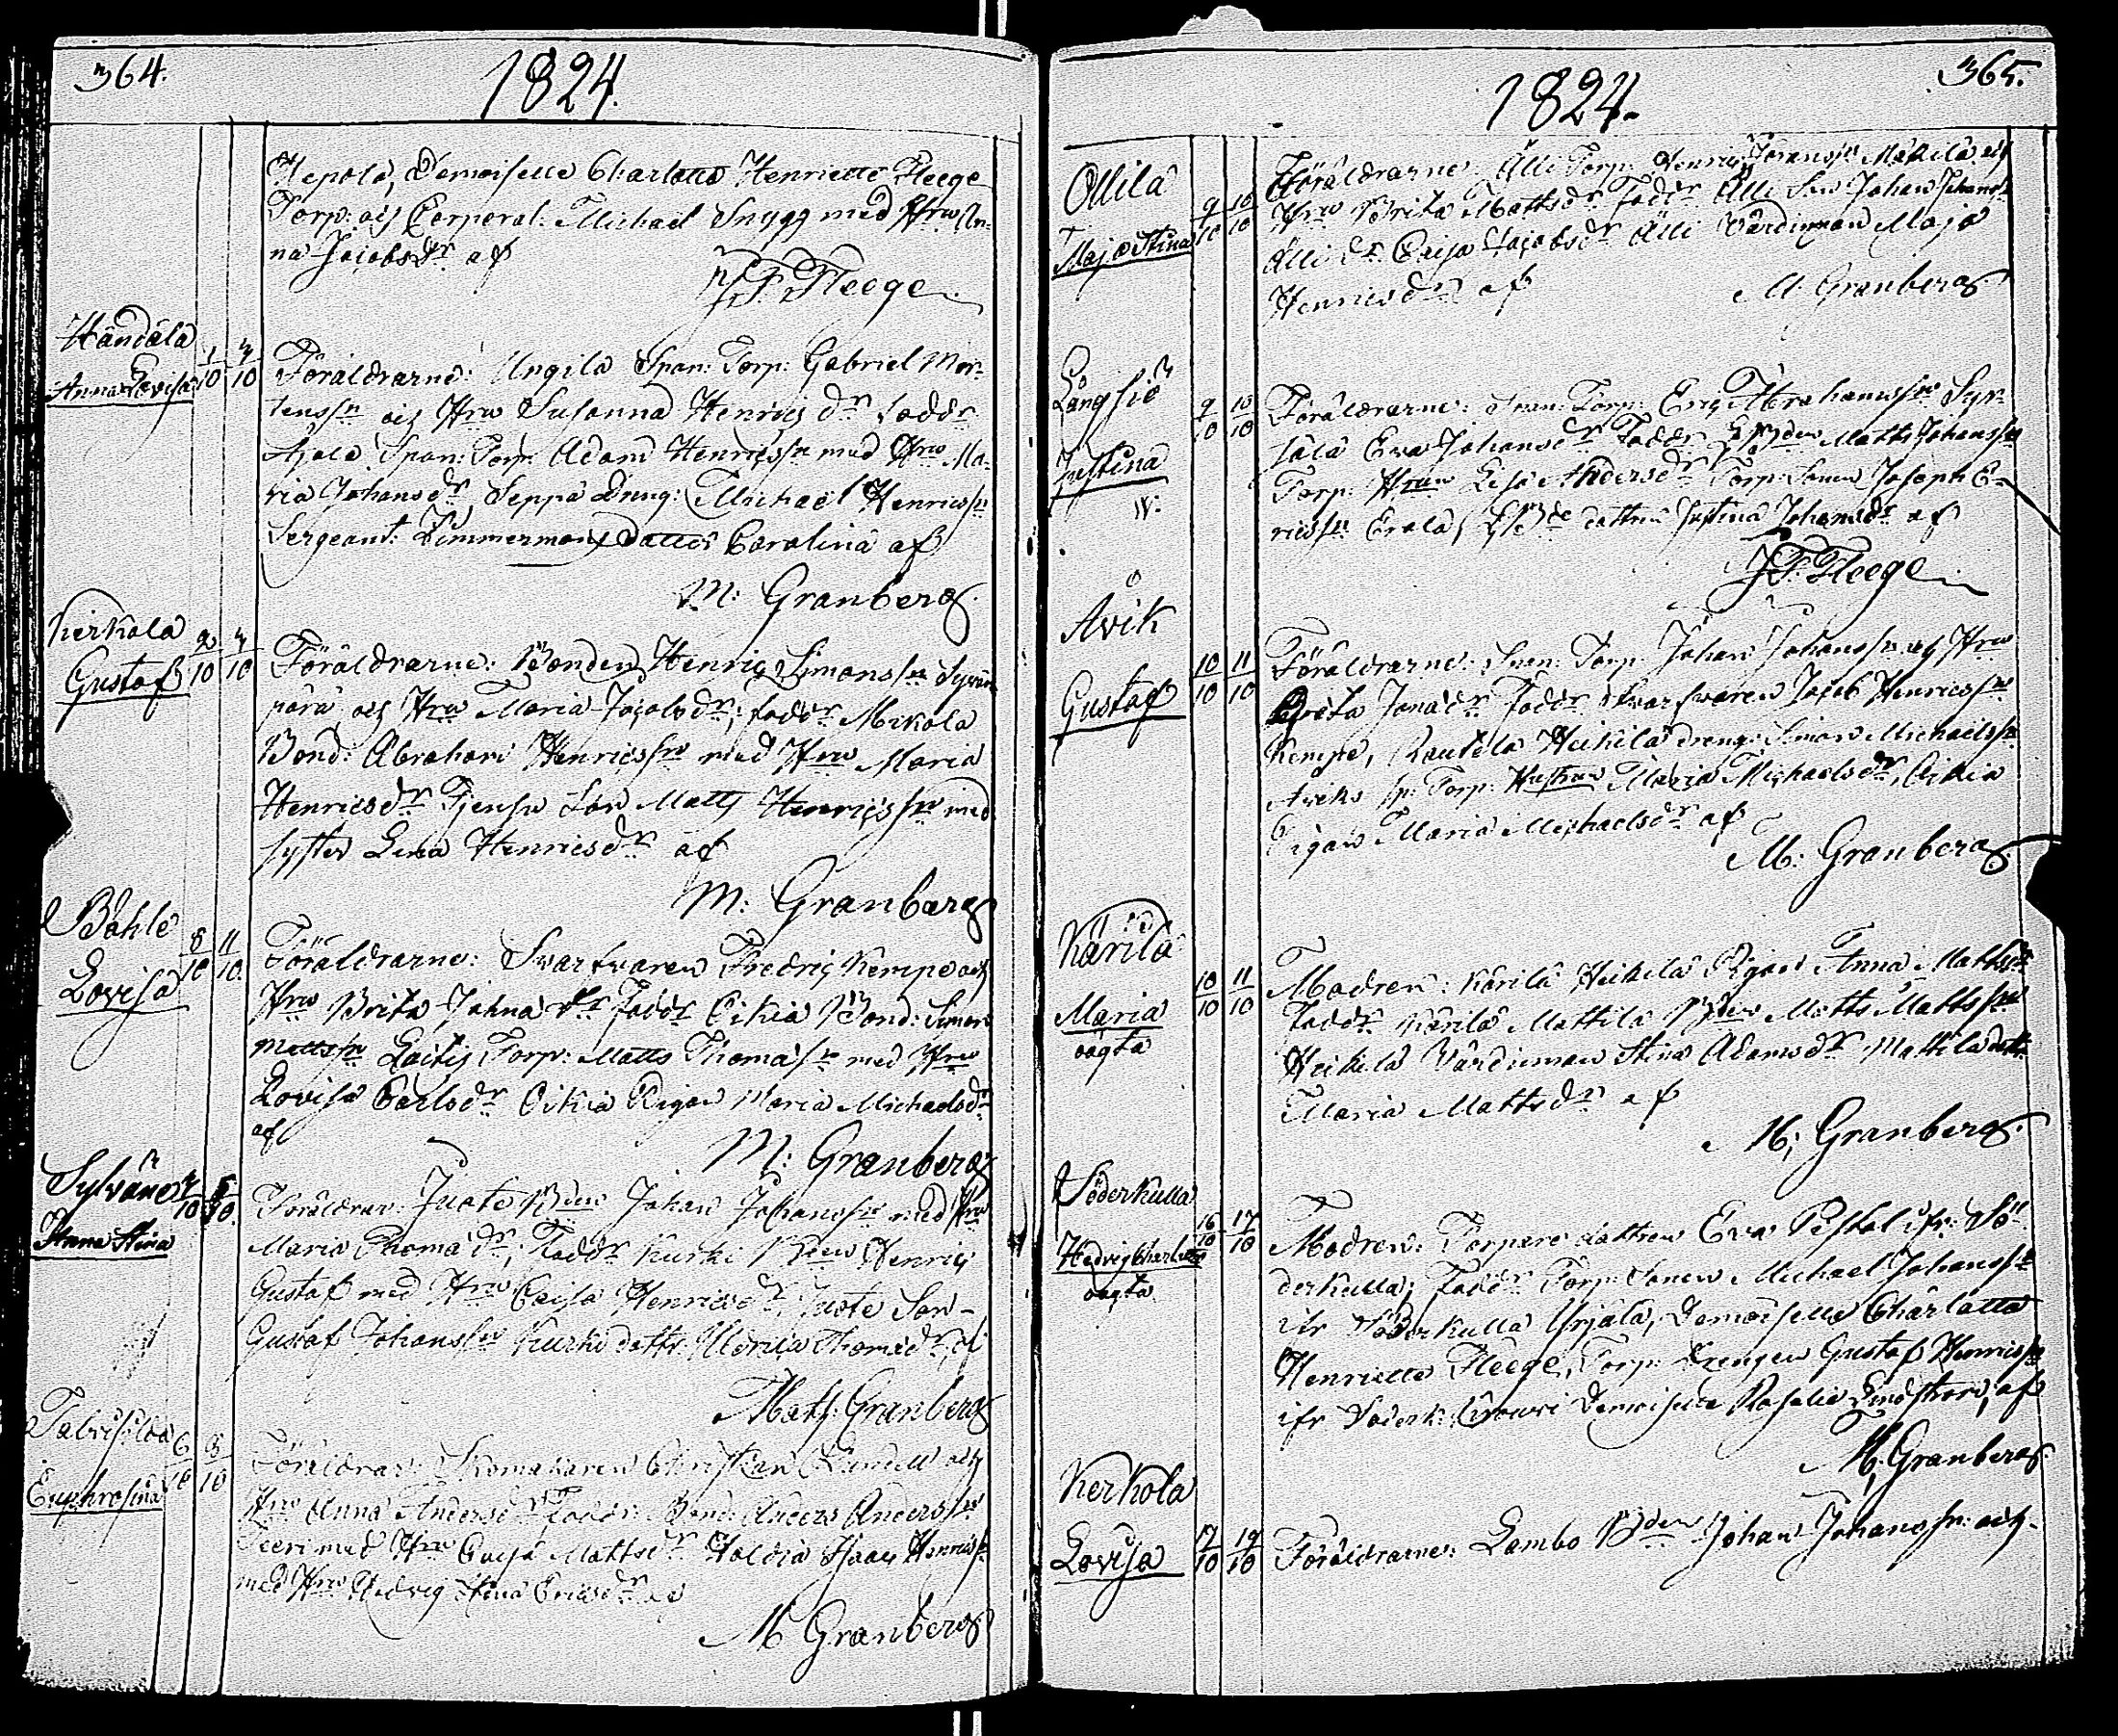 364.
1824.
Hepola, Demoiselle Charlotta Henriette Fleege
Torp: och Corporal: Michael Snygg med Hru An-
na Jacobsdr af
J. F. Fleege
Handala
Anna Lovisa
1/10 3/10
Föräldrarne: Ungila Span: Torp: Gabriel Mor-
tenssn och Hru Susanna Henrics dr faddr
Ajala Span: Torp: Adam Henricssn med Hru Ma-
ria Johansdr Seppä Dräng: Michael Henricssn
Sergeant: Zimmermans Dotter Carolina af
M: Granberg
Kerkola
Gustaf
2/10 3/10
Föräldrarne: Bonden Henric Simonssn Syvän
pärä och Hru Maria Jacobsdr; faddr Mikola
Bond: Abraham Henricssn med Hru Maria
Henricsdr Son Matts Henricssn med
syster Lena Henricsdr af
M: Granberg
Båhle
Lovisa
8/10 11/10
Föräldrarne: Svarfvaren Fredric Kempe och
Hru Brita Johna dr faddr Oikia Bond: Simon
Mattssn Torp: Matts Thomassn med Hru
Lovisa Carlsdr Oikia Pigan Maria Michaelsdr
af
M: Granberg
Sylvänä
Anna Stina
Föräldrar: Juote Bden Johan Johanssn med Hru
Maria Thoma dr; Faddr Kurki Bden Henric
Gustaf med Hru Caisa Henricsdr, Juote Son
Gustaf Johanssn Kurki dottr: Ulrica Thomædr, af
Mats: Granberg
Euphrosina
6/10 8/10
Föräldrar: Skomakaren Christian Lundell och
Hru Anna Andersdr Faddr: Bond: Anders Anderssn
med Hru Caisa Mattsdr Haldia Isaac Henricssn
med Hru Hedvig Stina Ericsdr af
M Granberg
365.
1824.
Ollila
Maja Stina
9/10 10/10
Föräldrarne: Älli Torp: Henric Göranssn Mäkilä och
Hru Brita Mattsdr Faddr Älli Son Johan Johanssn
Älli dr Caisa Jacobsdr Älli Värdinnan Maja
Henricsdr af
M: Granberg
Långsjö
Justina
9/10 10/10
Föräldrarne: Span: Torp: Eric Abrahamssn Syr-
jälä Eva Johansdr Faddr Bden Matts Johanssn
Torp: Hrun Lisa Andersdr Torp: Sonen Joseph E-
ricssn Erola, dottren Justina Johansdr af
J. F. Fleege
Åvik
Gustaf
10/10 11/10
Föräldrarne: Span: Torp: Johan Johanssn och Hru
Greta Jonædr Faddr Svarfvaren Jacob Henricssn
Kempe, Rautela Heikilä dräng: Simon Michaelssn
Aviks sp: Torp: Hustrun Maria Michaelsdr, Oikia
Pigan Maria Michaelsdr af
M: Granberg
Kärilä
Maria
oägta
10/10 11/10
Modren: Kärilä Heikilä Pigan Anna Mattsdr
Faddr Kärilä Mattila Bden Matts Mattssn
Heikilä Värdinnan Stina Adamsdr Mattila dottr
Maria Mattsdr af
M: Granberg
Söderkulla
Hedvig Charlotta
oägta
16/10 17/10
Modren: Torpare dottren Eva ifr: Sö-
derkulla; Faddr Torp: Sonen Michael Johanssn
ifr Söderkulla Urjala, Demoiselle Charlotta
Henriette Fleege, Torp: Drengen Gustaf Henricssn
ifr Söderk: Demoiselle Rosalie Lindström, af
M. Granberg
Kerkola
Lovisa
17/10 19/10
Föräldrarne: Lambo Bden Johan Johanssn: och